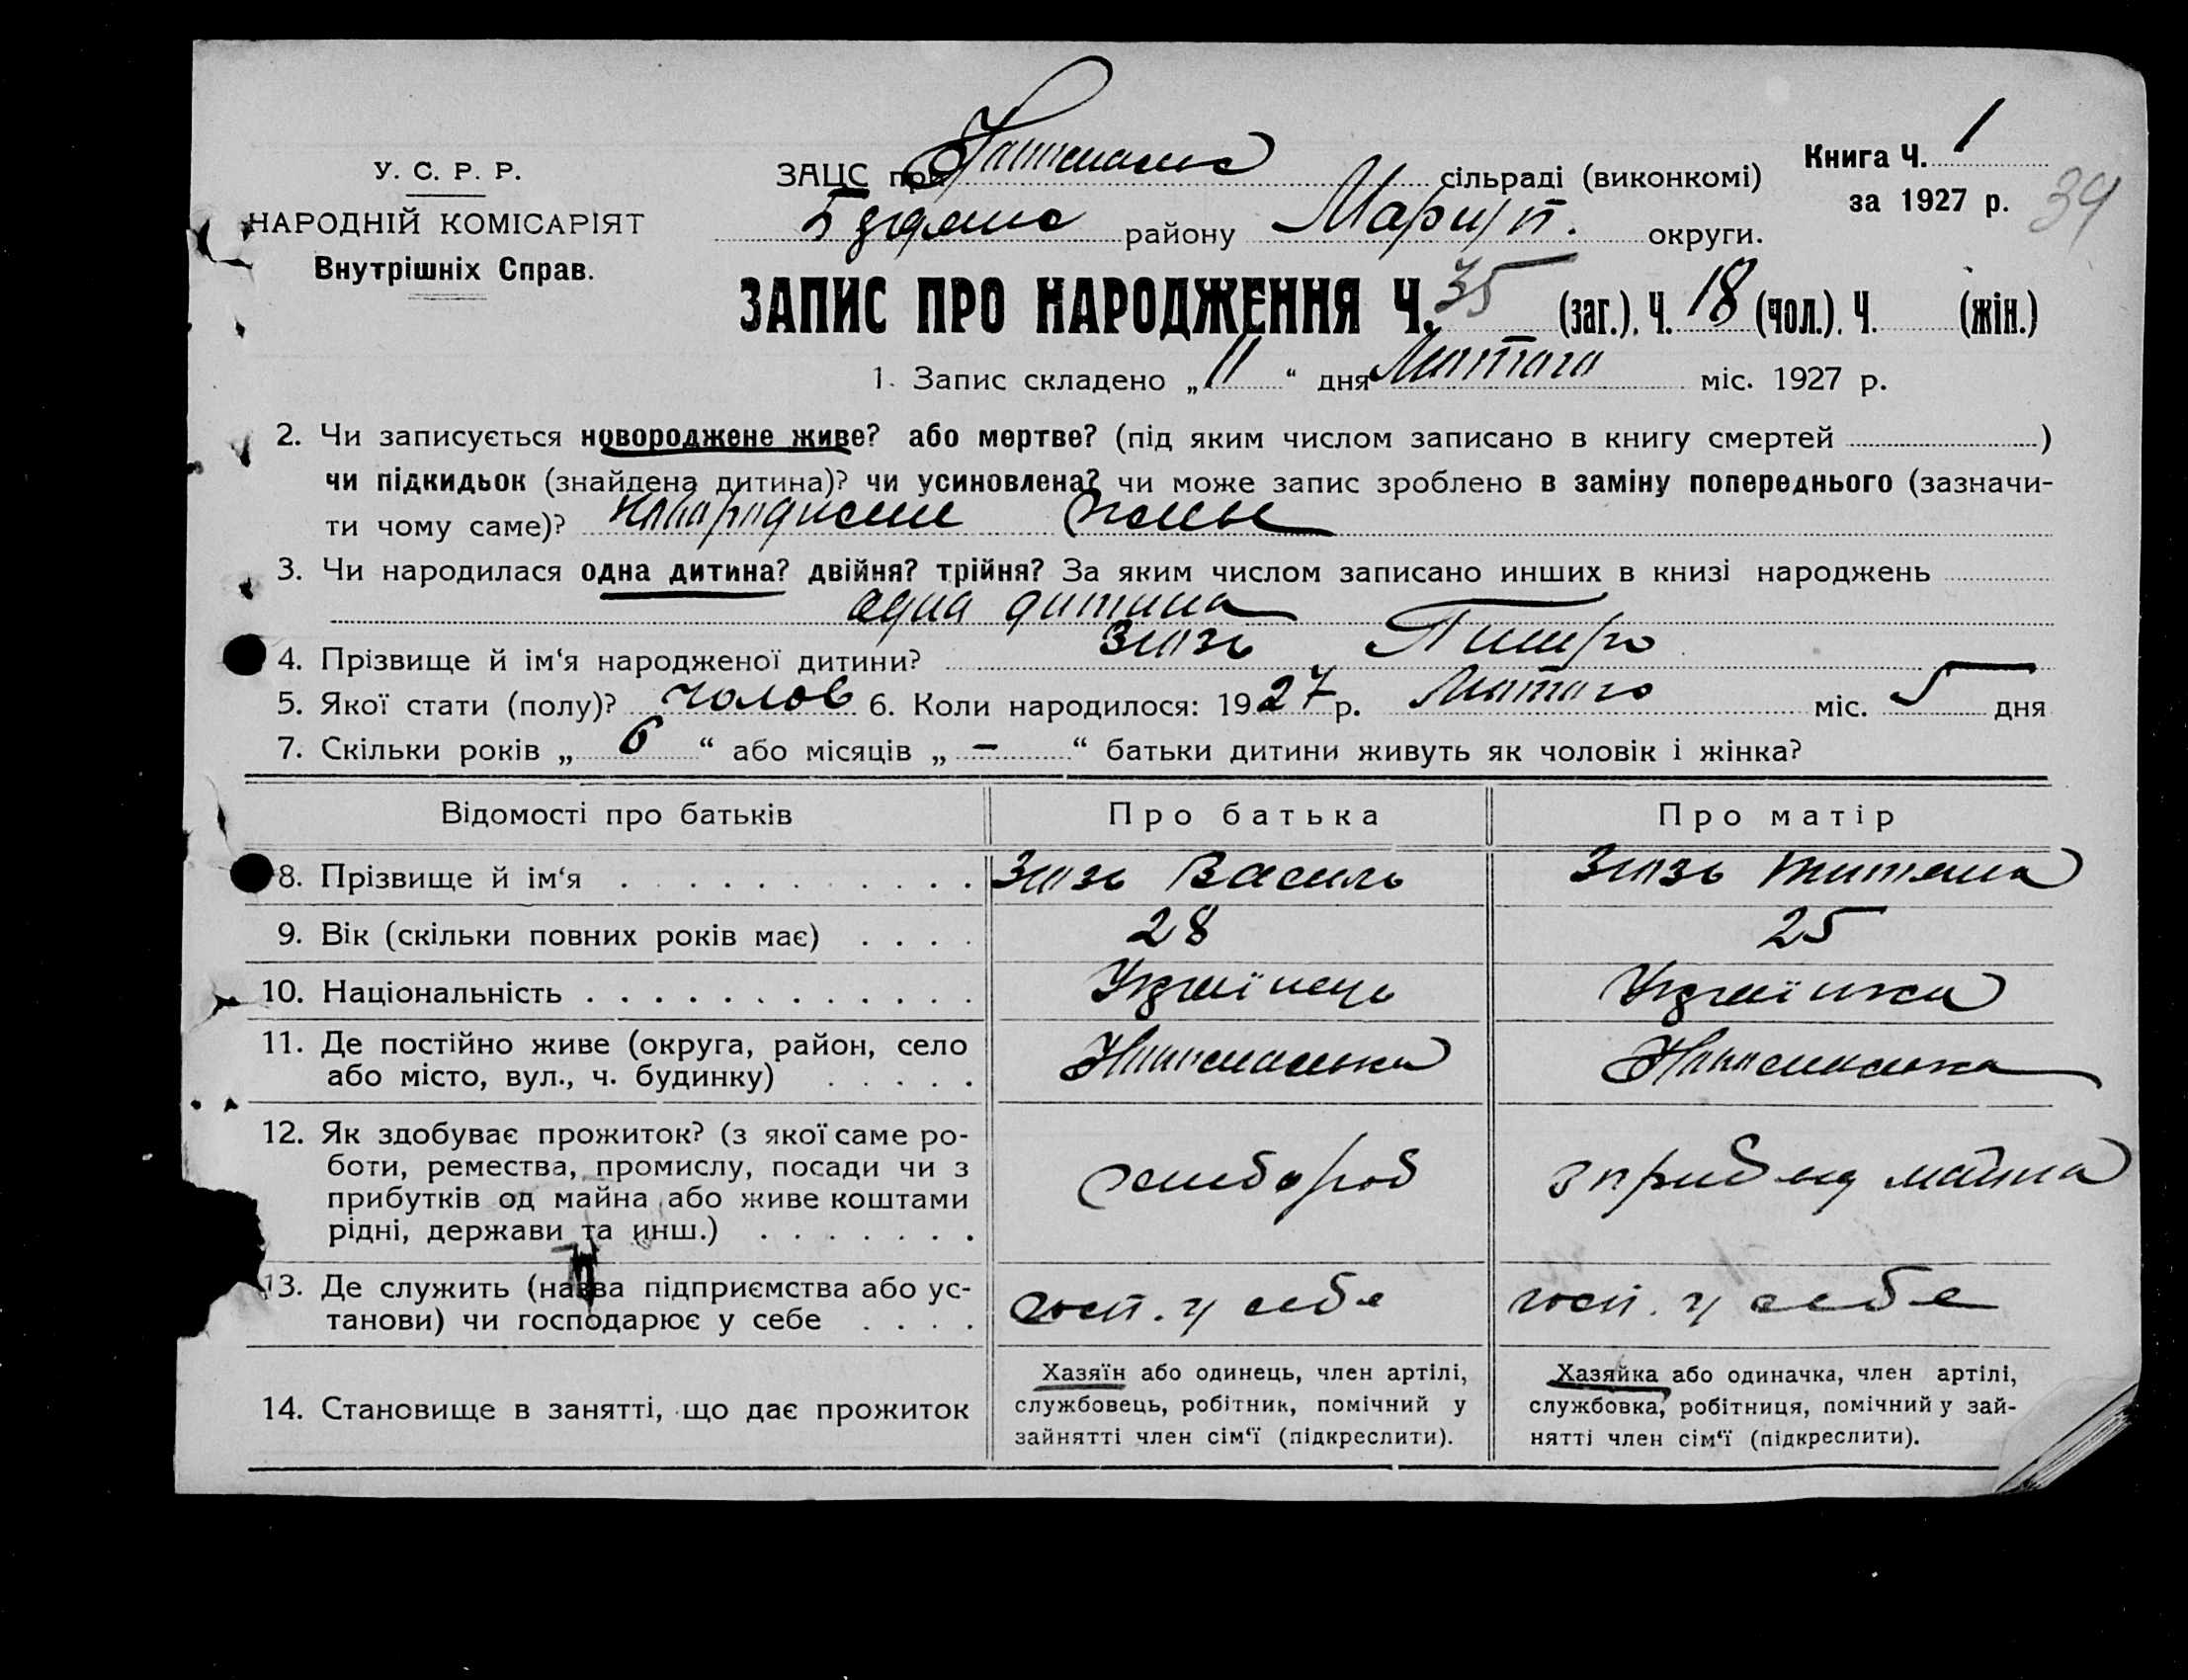 У. С. Р. Р.
НАРОДНІЙ КОМІСАРІЯТ
Внутрішніх Справ.
ЗАЦС при сільраді (виконкомі)
району Маріуп. округи.
Книга Ч. 1
за 1927 р.
39
ЗАПИС ПРО НАРОДЖЕННЯ Ч. 35 (заг.). Ч. 18 (чол.). Ч. (жін.)
1. Запис складено „ 11 “ дня Лютого міс. 1927 р.
2. Чи записується новороджене живе? або мертве? (під яким числом записано в книгу смертей )
чи підкидьок (знайдена дитина)? чи усиновлена? чи може запис зроблено в заміну попереднього (зазначи-
ти чому саме)?
3. Чи народилася одна дитина? двійня? трійня? За яким числом записано инших в книзі народжень
одна дитина
4. Прізвище й ім‘я народженої дитини?
5. Якої стати (полу)? чолов 6. Коли народилося: 1927 р. Лютого міс. 5 дня
7. Скільки років „ 6 “ або місяців „ — “ батьки дитини живуть як чоловік і жінка?
Відомості про батьків Про батька Про матір
8. Прізвище й ім‘я Василь
9. Вік (скільки повних років має) 28 25
10. Національність Українець Україінка
11. Де постійно живе (округа, район, село
або місто, вул., ч. будинку)
12. Як здобуває прожиток? (з якої саме ро-
боти, ремества, промислу, посади чи з
прибутків од майна або живе коштами
рідні, держави та инш.) хлібороб з прибод майна
13. Де служить (назва підприємства або ус-
танови) чи господарює у себе госп. у себе госп. у себе
14. Становище в занятті, що дає прожиток
Хазяїн або одинець, член артілі,
службовець, робітник, помічний у
зайнятті член сім‘ї (підкреслити).
Хазяйка або одиначка, член артілі,
службовка, робітниця, помічний у зай-
нятті член сім‘ї (підкреслити).